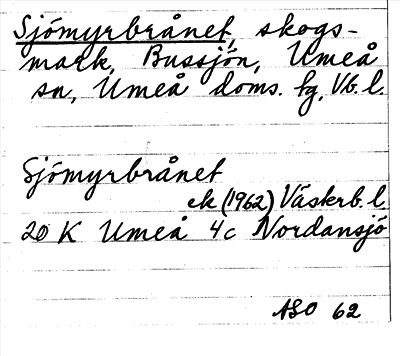 Sjömyrbrånet, skogs-
mark, Bussjön, Umeå
sn, Umeå doms. fg, Vb. l.
Sjömyrbrånet
ek (1962) Västerb. l
20 K Umeå 4c Nordansjö
ASO 62